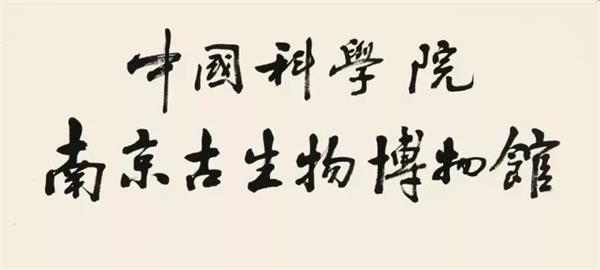 中國科學院
南京古生物博物館